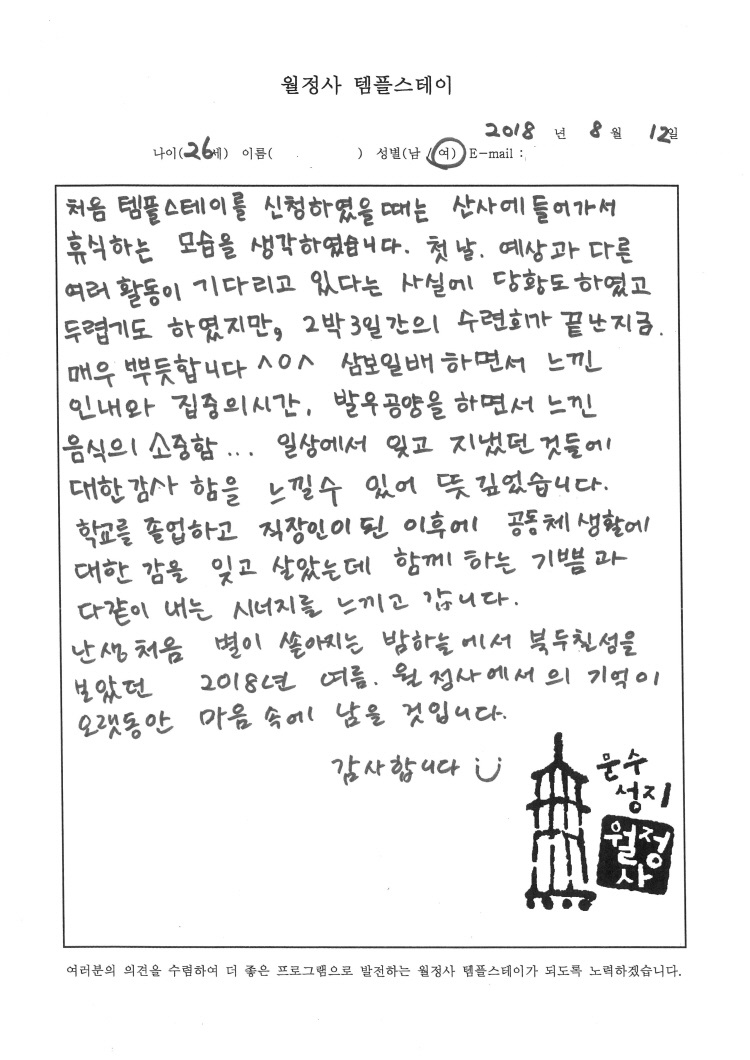 월정사 템플스테이
2018 년 8 월 12일
나이(26세) 이름( ) 성별(남 / 여) E-mail :
처음 템플스테이를 신청하였을 때는 산사에 들어가서
휴식하는 모습을 생각하였습니다. 첫날. 예상과 다른
여러 활동이 기다리고 있다는 사실에 당황도 하였고
두렵기도 하였지만, 2박3일간의 수련회가 끝난지금.
매우 뿌듯합니다 ^o^ 삼보일배 하면서 느낀
인내와 집중의시간, 발우공양을 하면서 느낀
음식의 소중함... 일상에서 잊고 지냈던 것들에
대한감사 함을 느낄수 있어 뜻 깊었습니다.
학교를 졸업하고 직장인이 된 이후에 공동체 생활에
대한 감을 잊고 살았는데 함께 하는 기쁨과
다같이 내는 시너지를 느끼고 갑니다.
난생 처음 별이 쏟아지는 밤하늘에서 북두칠성을
보았던 2018년 여름. 월정사에서의 기억이
오랫동안 마음 속에 남을 것입니다.
감사합니다
문수
성지
월정
사
여러분의 의견을 수렴하여 더 좋은 프로그램으로 발전하는 월정사 템플스테이가 되도록 노력하겠습니다.